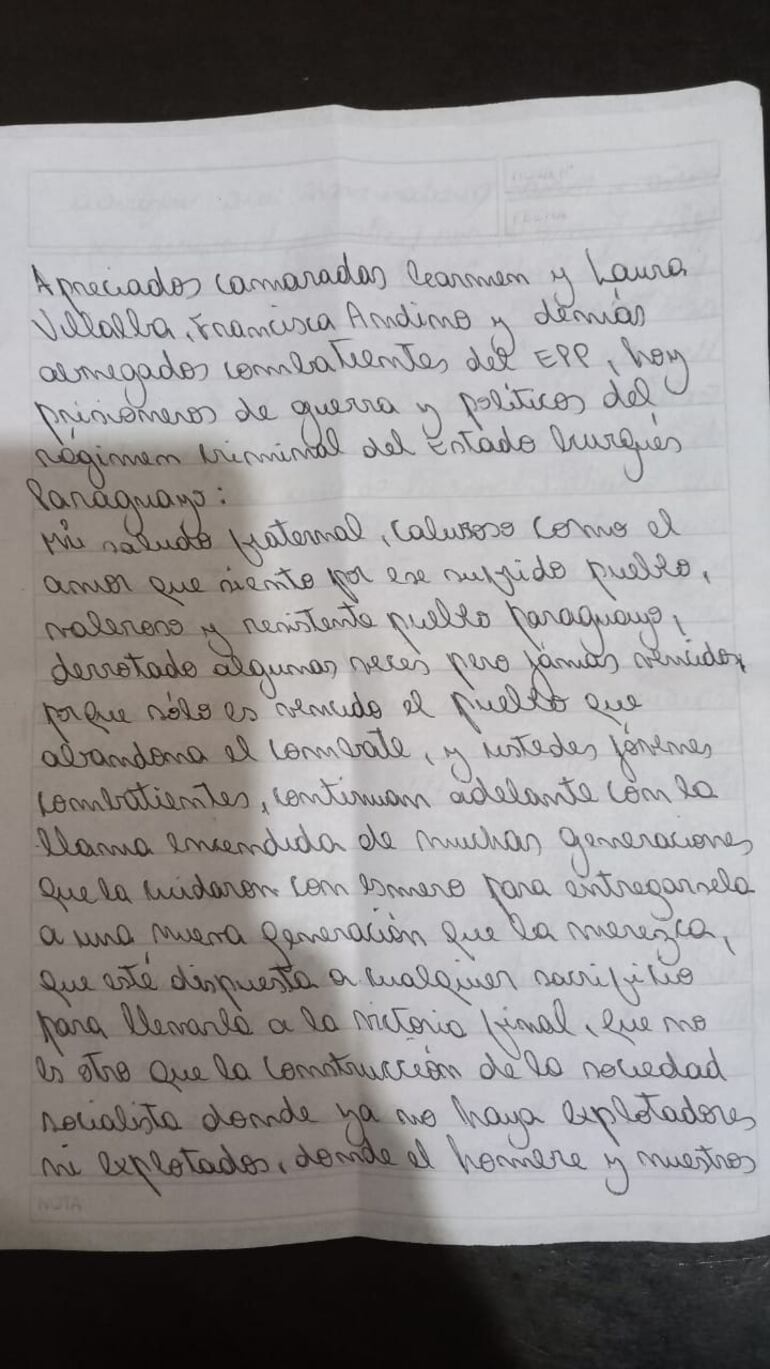 Apreciados camaradas Carmen y Laura
Villalba, Francisca Andino y demás
abnegados combatientes del EPP, hoy
prisioneros de guerra y políticos del
régimen criminal del Estado burgués
Paraguayo:
Mi saludo fraternal, caluroso como el
amor que siento por ese sufrido pueblo,
valeroso y resistente pueblo paraguayo,
derrotado algunas veces pero jámas vencido,
porque sólo es vencido el pueblo que
abandona el combate, y ustedes jóvenes
combatientes, continuan adelante con la
llama encendida de muchas generaciones
que la cuidaron con esmero para entregarsela
a una nueva generación que la merezca,
que esté dispuesta a cualquier sacrificio
para llevarla a la victoria final, que no
es otro que la construcción de la sociedad
socialista donde ya no haya explotadores
ni explotados, donde el hombre y nuestros
NOTA